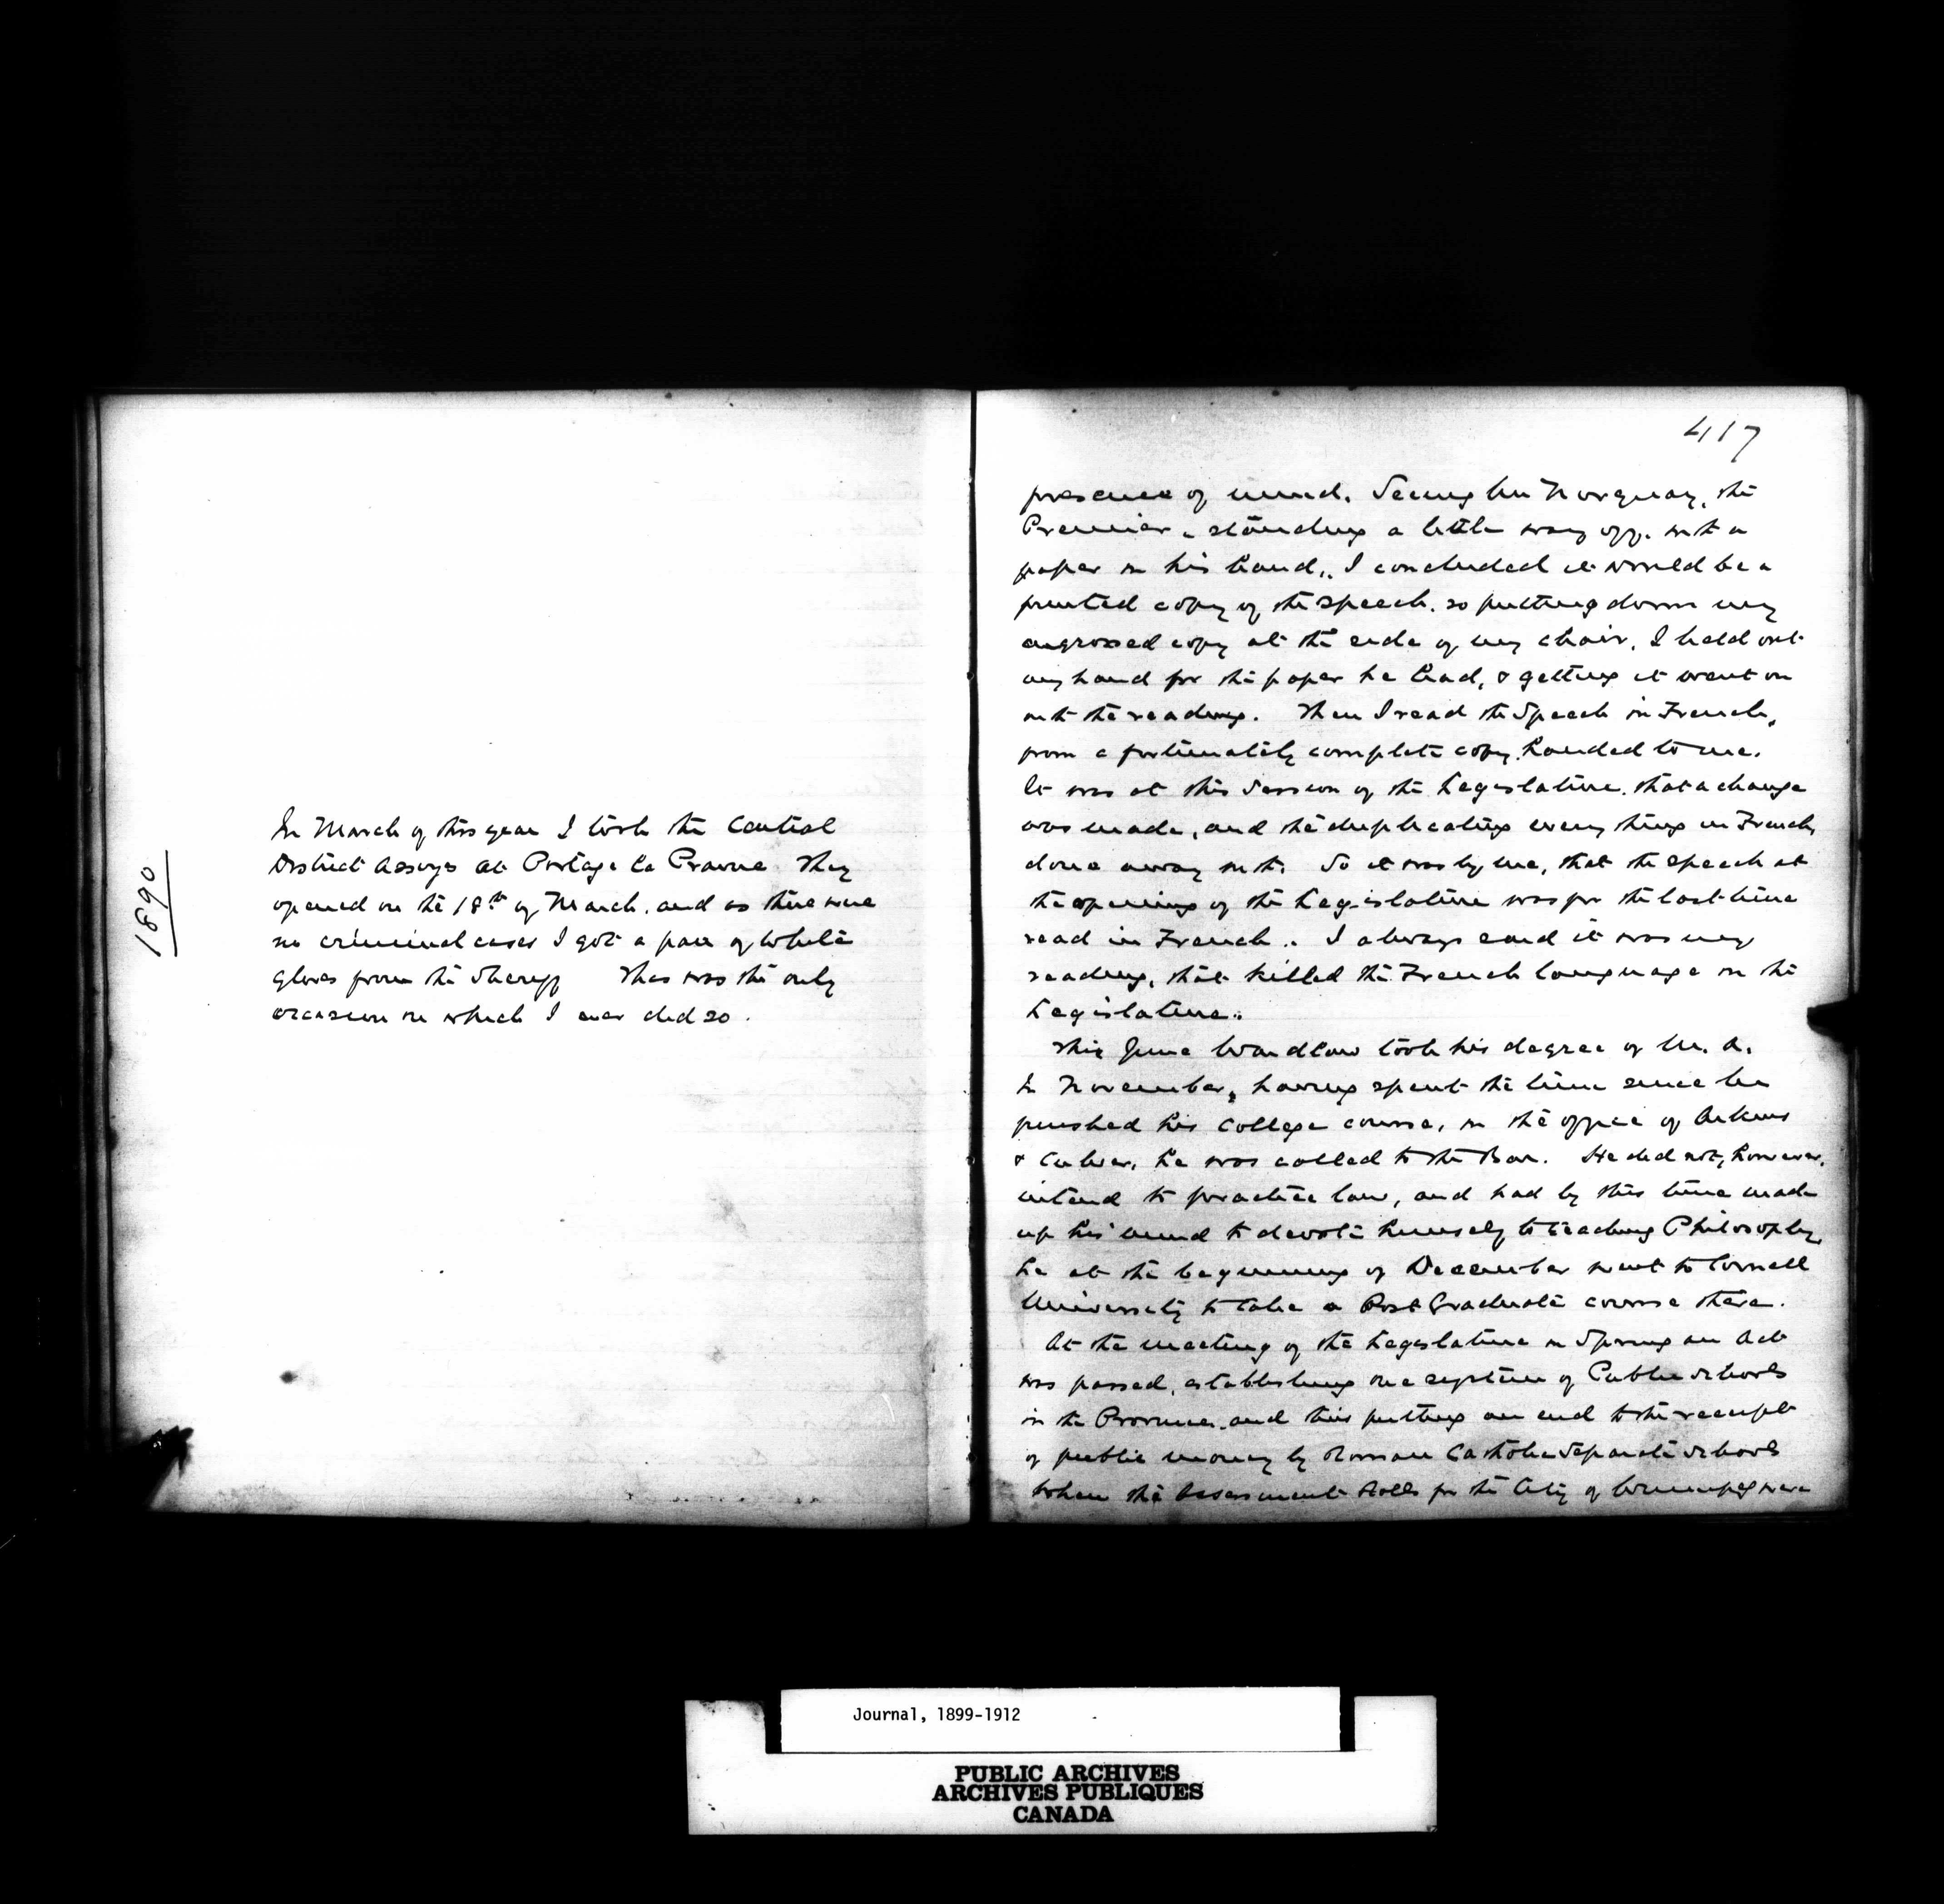 1890
In March of this year I took the Central
District Assizes at Portage la Prairie They
opened on the 18th of March, and as there were
no criminal cases I got a pair of white
gloves from the Sheriff This was the only
occasion on which I ever did so.
417
presence of mind. Seeing Mr Norquay, the
Premier, standing a little way off. with a
paper in his hand, I concluded it would be a
printed copy of the speech. so putting down my
engrossed copy at the side of my chair, I held out
my hand for the paper he had, & getting it went on
with the reading. Then I read the Speech in French,
from a fortunately complete copy handed to me.
It was at this Session of the Legislature. that a change
was made, and the duplicating every thing in French,
done away with. So it was by me, that the speech at
the opening of the Legislature was for the last time
read in French. I always said it was my
reading, that killed the French language in the
Legislature.
This June Wardlaw took his degree of M. A.
In November, having spent the time since he
finished his College course, in the office of Aikins
& Culver, he was called to the Bar. He did not, however,
intend to practice law, and had by this time made
up his mind to devote himself to teaching Philosophy,
he at the beginning of December went to Cornell
University to take a Post Graduate course there.
At the meeting of the Legislature in Spring an Act
was passed, establishing one system of Public Schools
in the Province, and this putting an end to the receipt
of public money by Roman Catholic Separate Schools
When the Assessment Rolls for the City of Winnipeg were
Journal, 1899-1912
PUBLIC ARCHIVES
ARCHIVES PUBLIQUES
CANADA